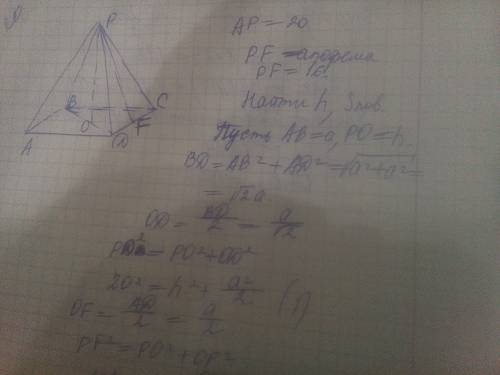 P
B
C
O
F
A
D
AP = 20
PF - апофема
PF = 16.
Найти h, Sпов.
Пусть AB = a, PO = h.
BD = AB² + AD² = √a² + a² =
= √2a
OD = BD/2 = a/√2
PD² = PO² + OD²
20² = h² + a²/2 (1)
OF = AD/2 = a/2
PF² = PO² + OF²